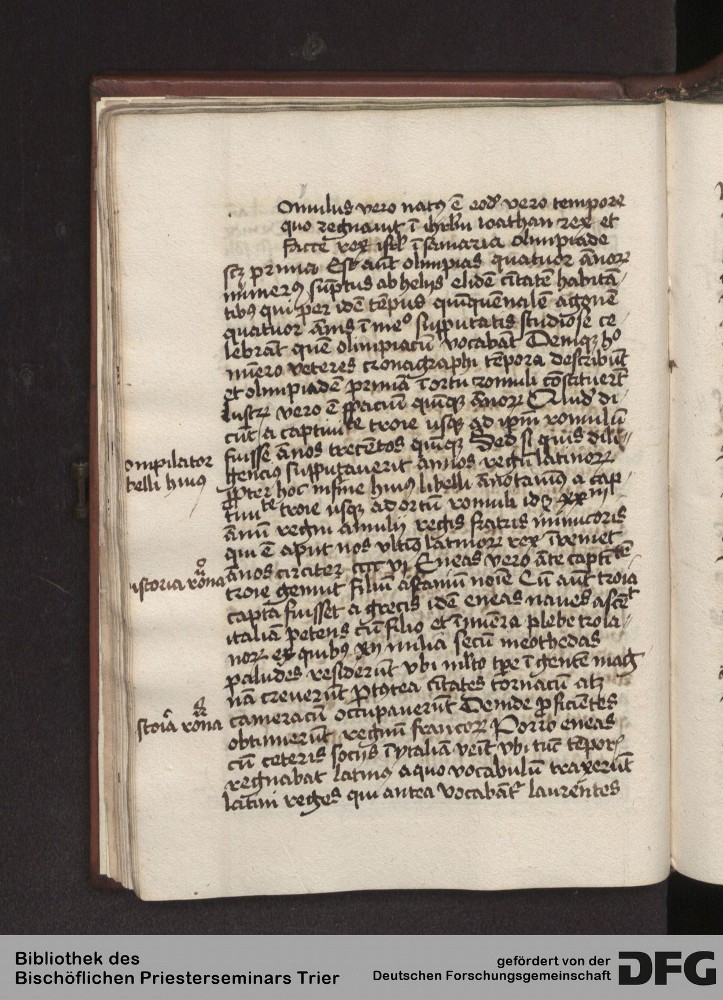 Omulus vero natꝰ ē eod vero tempore
quo regnavit ī ihrl'm ioathan rex et
faccee rex isrl' ī samaria olimpiade
scz prima Est aūt olimpias quatuor ānorꝝ
nūmerꝰ sūptus ab helijs elidē ciūtatē habitā-
tibꝰ qui per idē tēpus quīquēnalē agonē
quatuor ānis ī meᵒ supputatis studiose ce-
lebrāt quē olimpiacū vocabāt Deniqꝫ hᵒ
nūero veteres cronagraphi tēpora describūt
et olimpiadē primā ī ortu romuli cōstituerūt
lustrꝝ vero ē spaciū quīqꝫ ānorꝝ Aliud di-
cūt a captiuiᵗᵉ troie usqꝫ ad ipm romulū
fuisse ānos trecentos quīqꝫ Sed si quis dili-
gencius supputauerit annos regū latinorꝝ
ꝓpter hoc in fine huiꝰ libelli ānotauimꝰ a cap-
tiuiᵗᵉ troie usqꝫ ad ortū romuli id ē xx iij
annū regni amulij regis fratris numitoris
qui ē aput nos ultimꝰ latinorꝝ rex īveniet
ānos circiter cccc vj Eneas vero āte captiᵗᵉ
troie genuit filiū astaniū noīe Cū aūt troia
capta fuisset a grecis idē eneas naues ascēt
italiā petens cū filio et īnūera plebe troia-
norꝝ ex quibꝰ xij milia secū meothedas
paludes residerūt ubi mlto tpe ī gentē mag
nā creuerūt ciūtates tornacū atqꝫ
cameracū occupauerūt Deinde ꝓficientes
obtinuerūt regnū francorꝝ Porro eneas
cū ceteris socijs ī ytaliā veīt ubi tūc tēporꝭ
regnabat latinꝰ a quo vocabulū traxerūt
latini reges qui antea vocabātr laurentes
ompilator
belli huiꝰ
istoria roᵒna
storiā roᵃna
Bibliothek des
Bischöflichen Priesterseminars Trier
gefördert von der
Deutschen Forschungsgemeinschaft
DFG